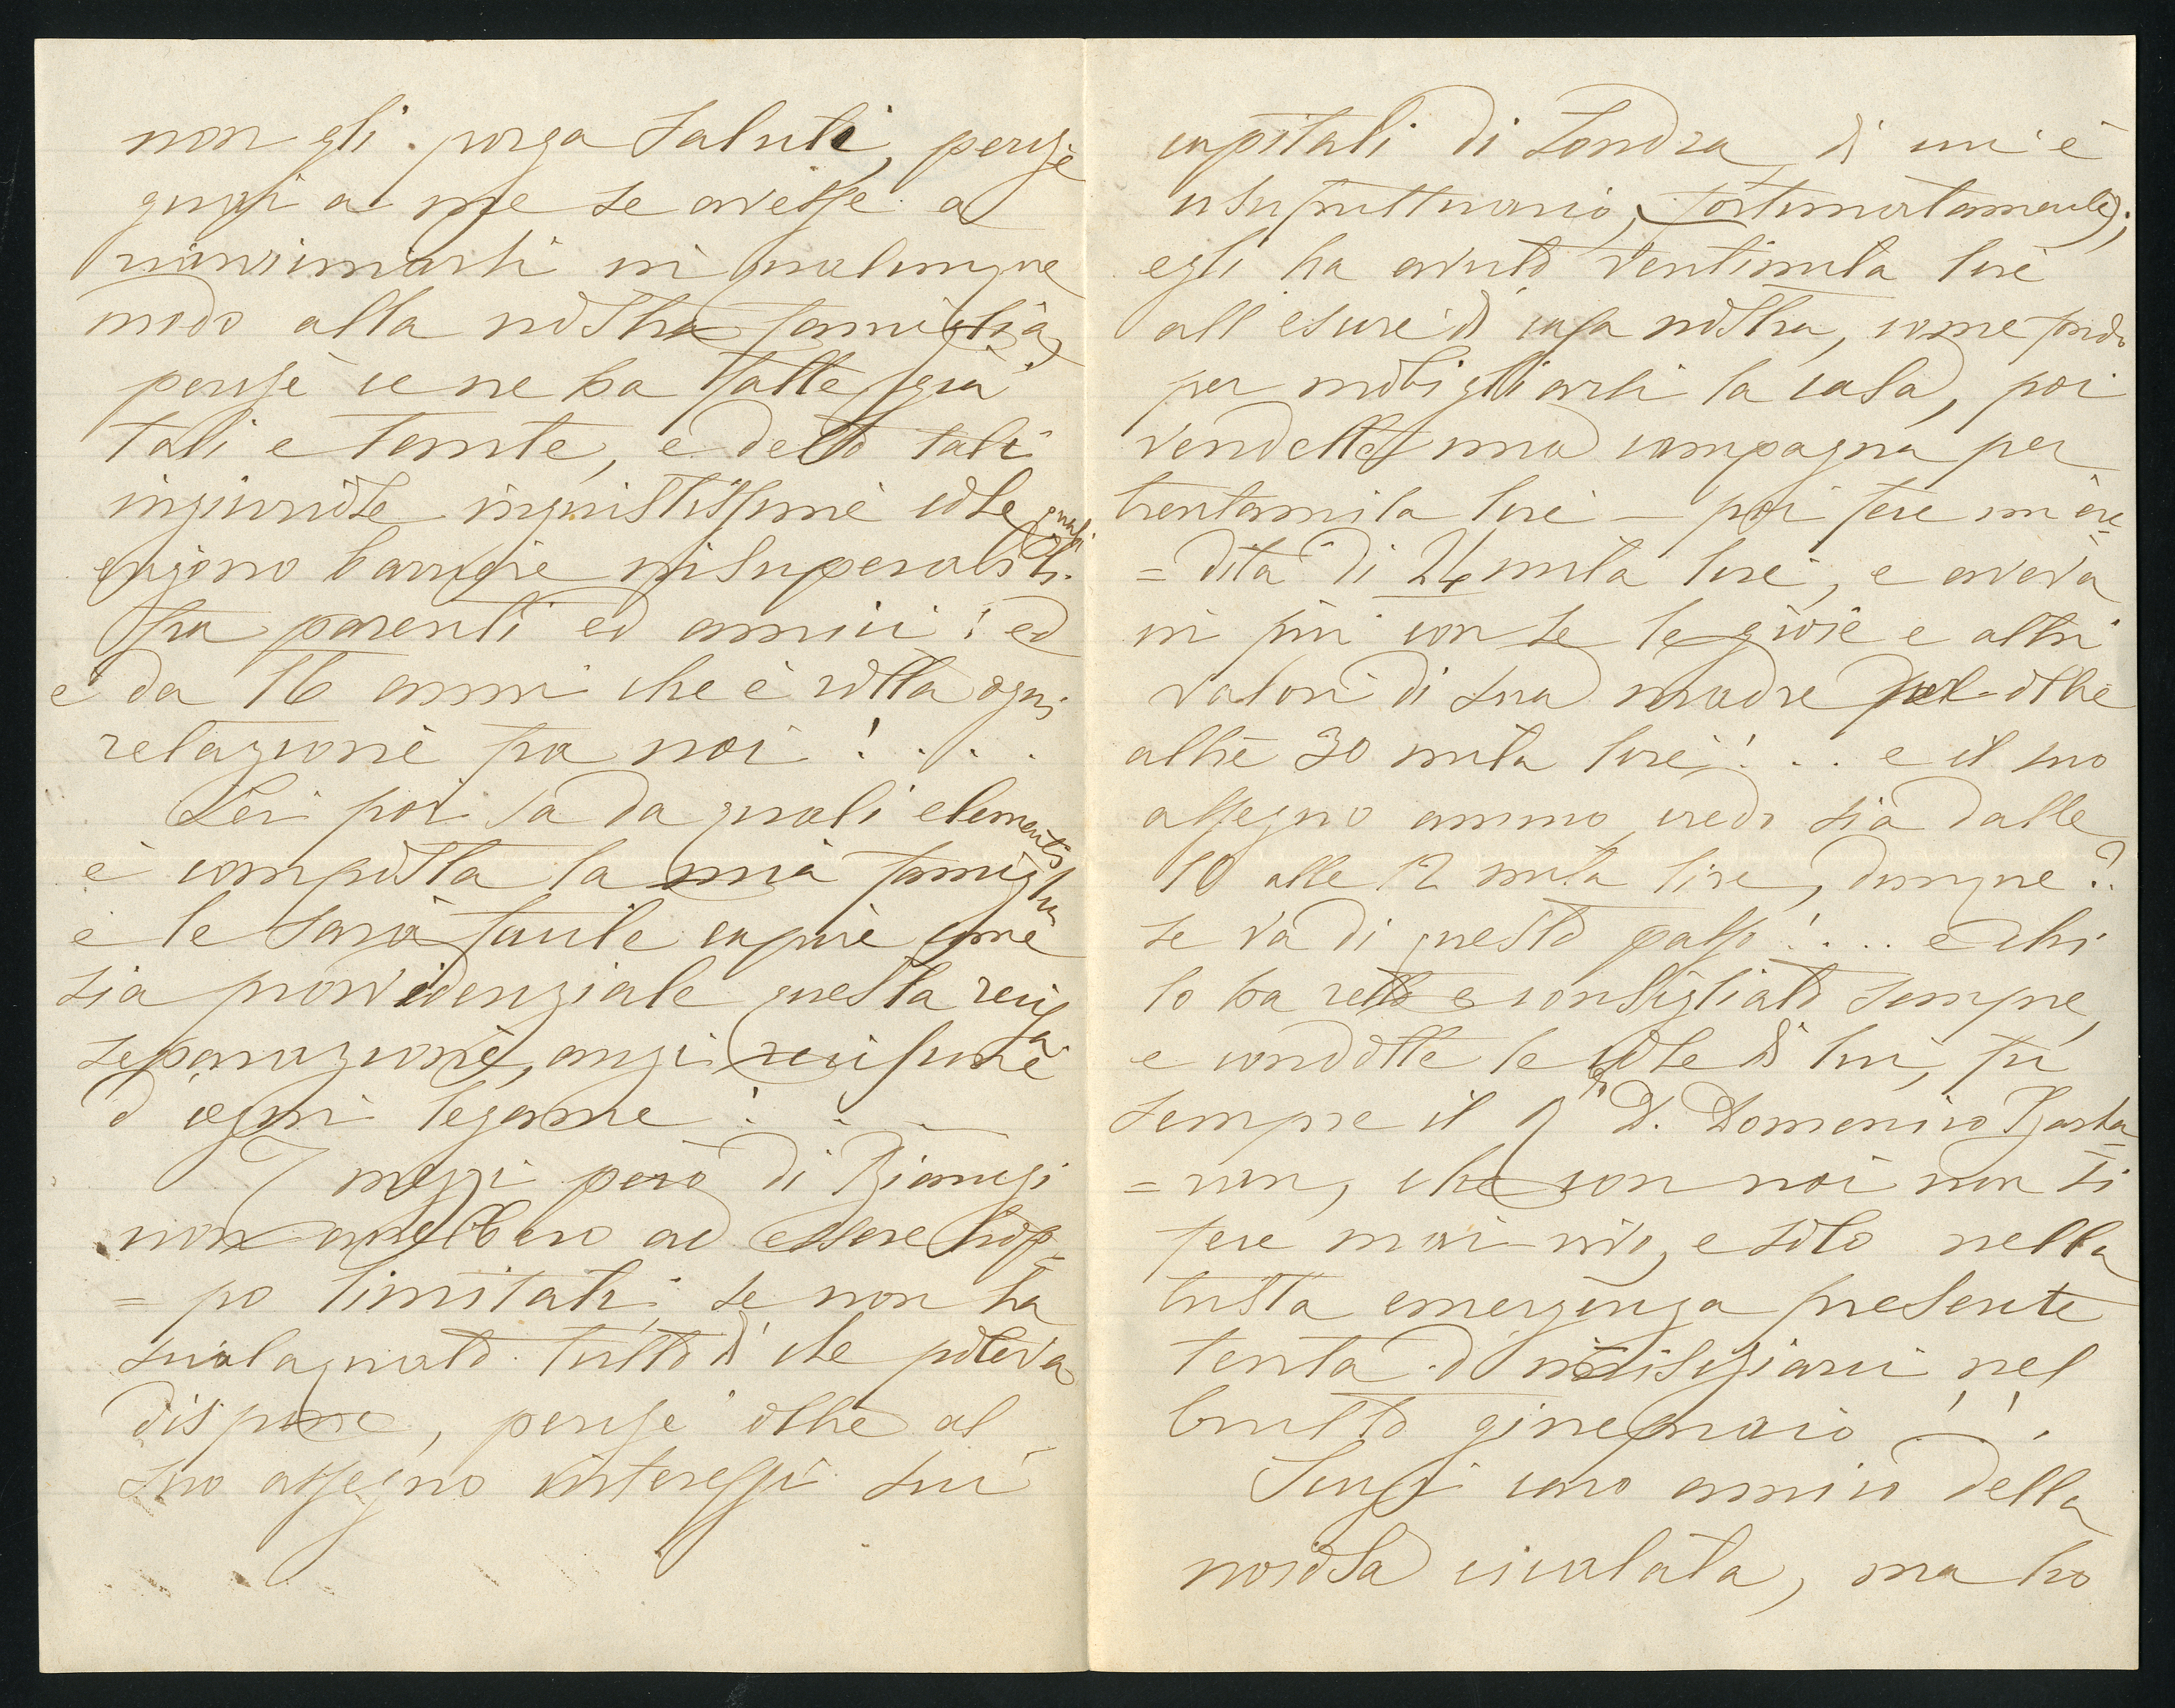 non gli porga saluti, perchè
guai a me se avesse a
riavvicinarsi in qualunque
modo alla nostra famiglia,
perchè ce ne ha fatte già
tali e tante, e detto tali
ingiuriose ingiustissime cose quali
ergono barriere insuperabili
fra parenti ed amici; ed
è da 16 anni che è rotta ogni
relazione fra noi! . . .
Lei poi sa da quali elementi
è composta la mia famiglia
e le sarà facile capire come
sia provvidenziale questa recisa
separazione, anzi recisione
d'ogni legame! . . .
I mezzi però di Biangi
non avrebbero ad essere trop=
=po limitati, se non ha
scialaquato tutto di che poteva
disporre, perchè oltre al
suo assegno interessi sui
capitali di Londra, di cui è
usufruttuario, (fortunatamente);
egli ha avuto ventimila lire
all'escire di casa nostra, come fondo
per mobigliarsi la casa, poi
vendette una campagna per
trentamila lire — poi fece un'ere=
=dità di 24 mila lire, e aveva
in più con se le gioie e altri
valori di sua madre per oltre
altre 30 mila lire! . . . e il suo
assegno annuo credo sia dalle
10 alle 12 mila lire, dunque?.
se va di questo passo! . . . e chi
lo ha retto e consigliato sempre,
e condotte le cose di lui, fu
sempre il D. Domenico Barba=
che con noi non si
fece mai vivo, e solo nella
trista emergenza presente
tenta d'inmischiarci nel
brutto ginepraio! ! .
Scusi caro amico della
noiosa cicalata, ma ho